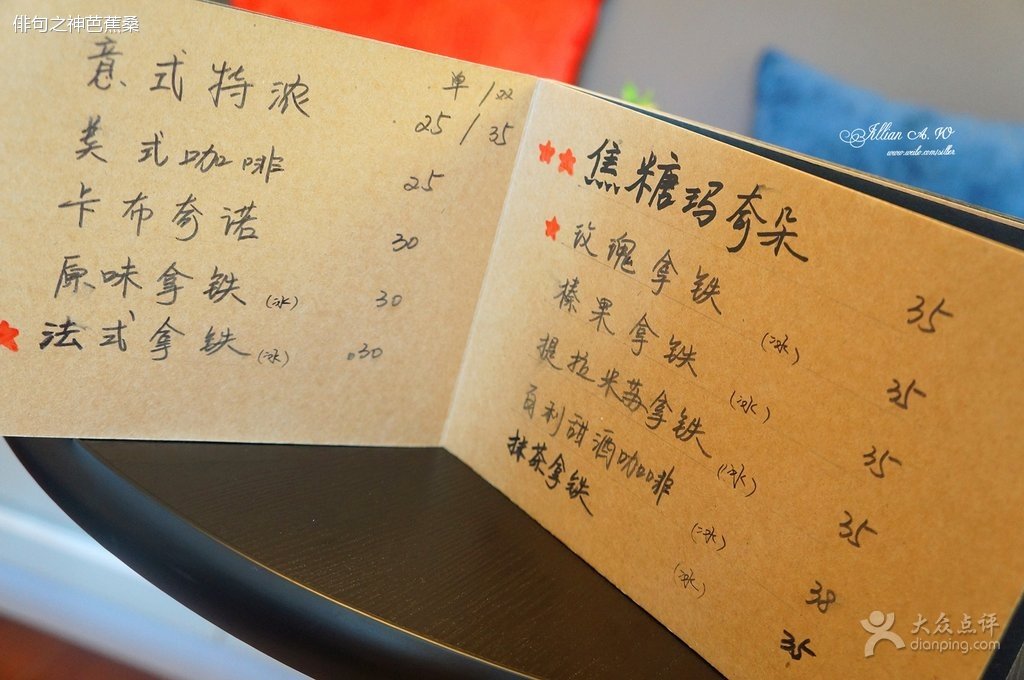 俳句之神芭蕉桑
意式特浓 单/双 25/35
美式咖啡 25
卡布奇诺 30
原味拿铁(冰) 30
★法式拿铁(冰) 30
★★焦糖玛奇朵 35
★玫瑰拿铁(冰) 35
榛果拿铁(冰) 35
提拉米苏拿铁(冰) 35
百利甜酒咖啡(冰) 38
抹茶拿铁(冰) 35
大众点评
dianping.com